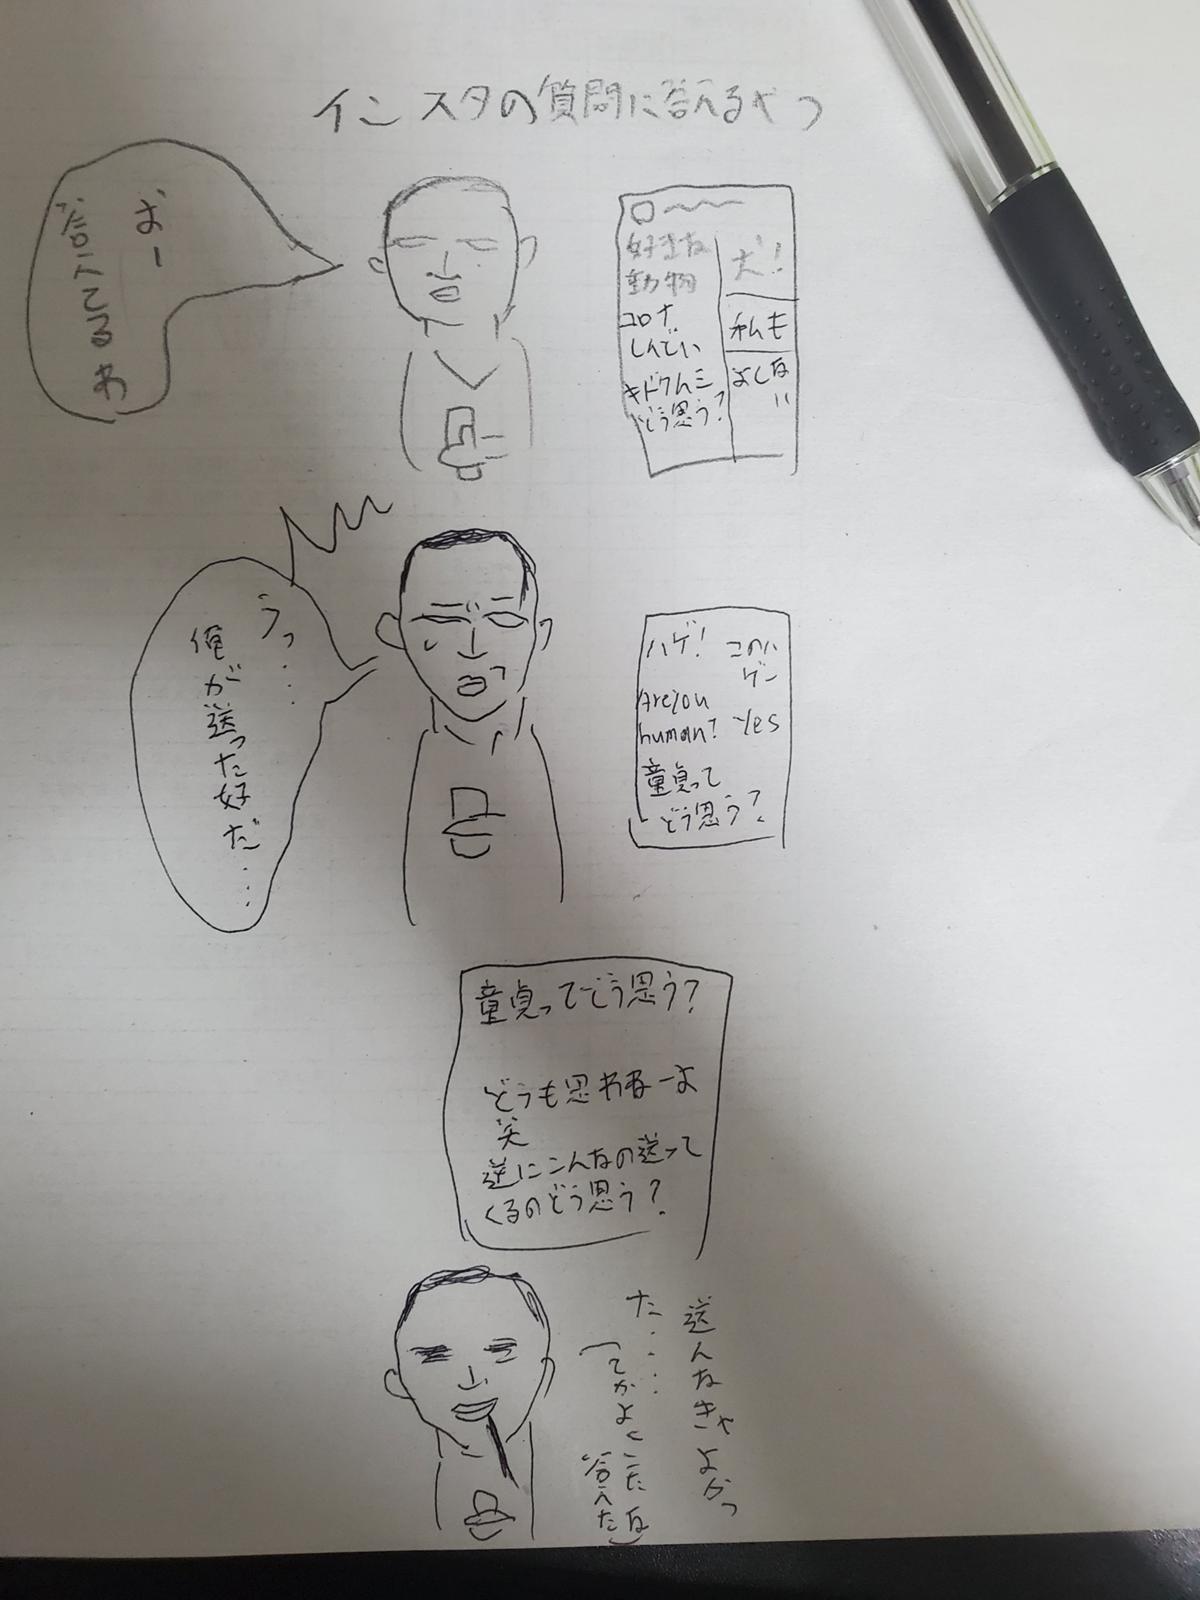 インスタの質問に答えるやつ
おー
答えてるわ
好きな
動物
犬！
コロナ
しんどい
私も
キドクムシ
どう思う？
よくない
うっ・・・
俺が送った奴だ・・・
ハゲ！
このハ
ゲー
Are you
human?
Yes
童貞って
どう思う？
童貞ってどう思う？
どうも思わねーよ
笑
逆にこんなの送って
くるのどう思う？
送んなきゃよかっ
た・・・・
(てかよくこたな
答えた)